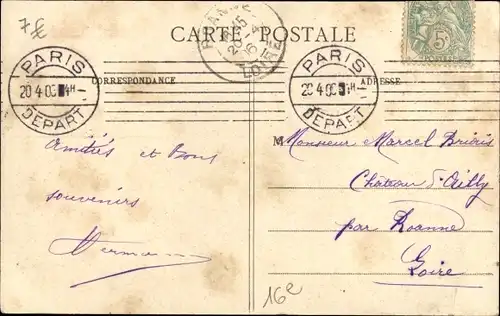 7€
CARTE POSTALE
ROANNE
LOIRE
5c
PARIS
20 4 06
DEPART
PARIS
20 4 06
DEPART
CORRESPONDANCE
ADRESSE
Amitiés et Bons
souvenirs
Hermann
Monsieur Marcel
Château d'Ailly
par Roanne
Loire
16e